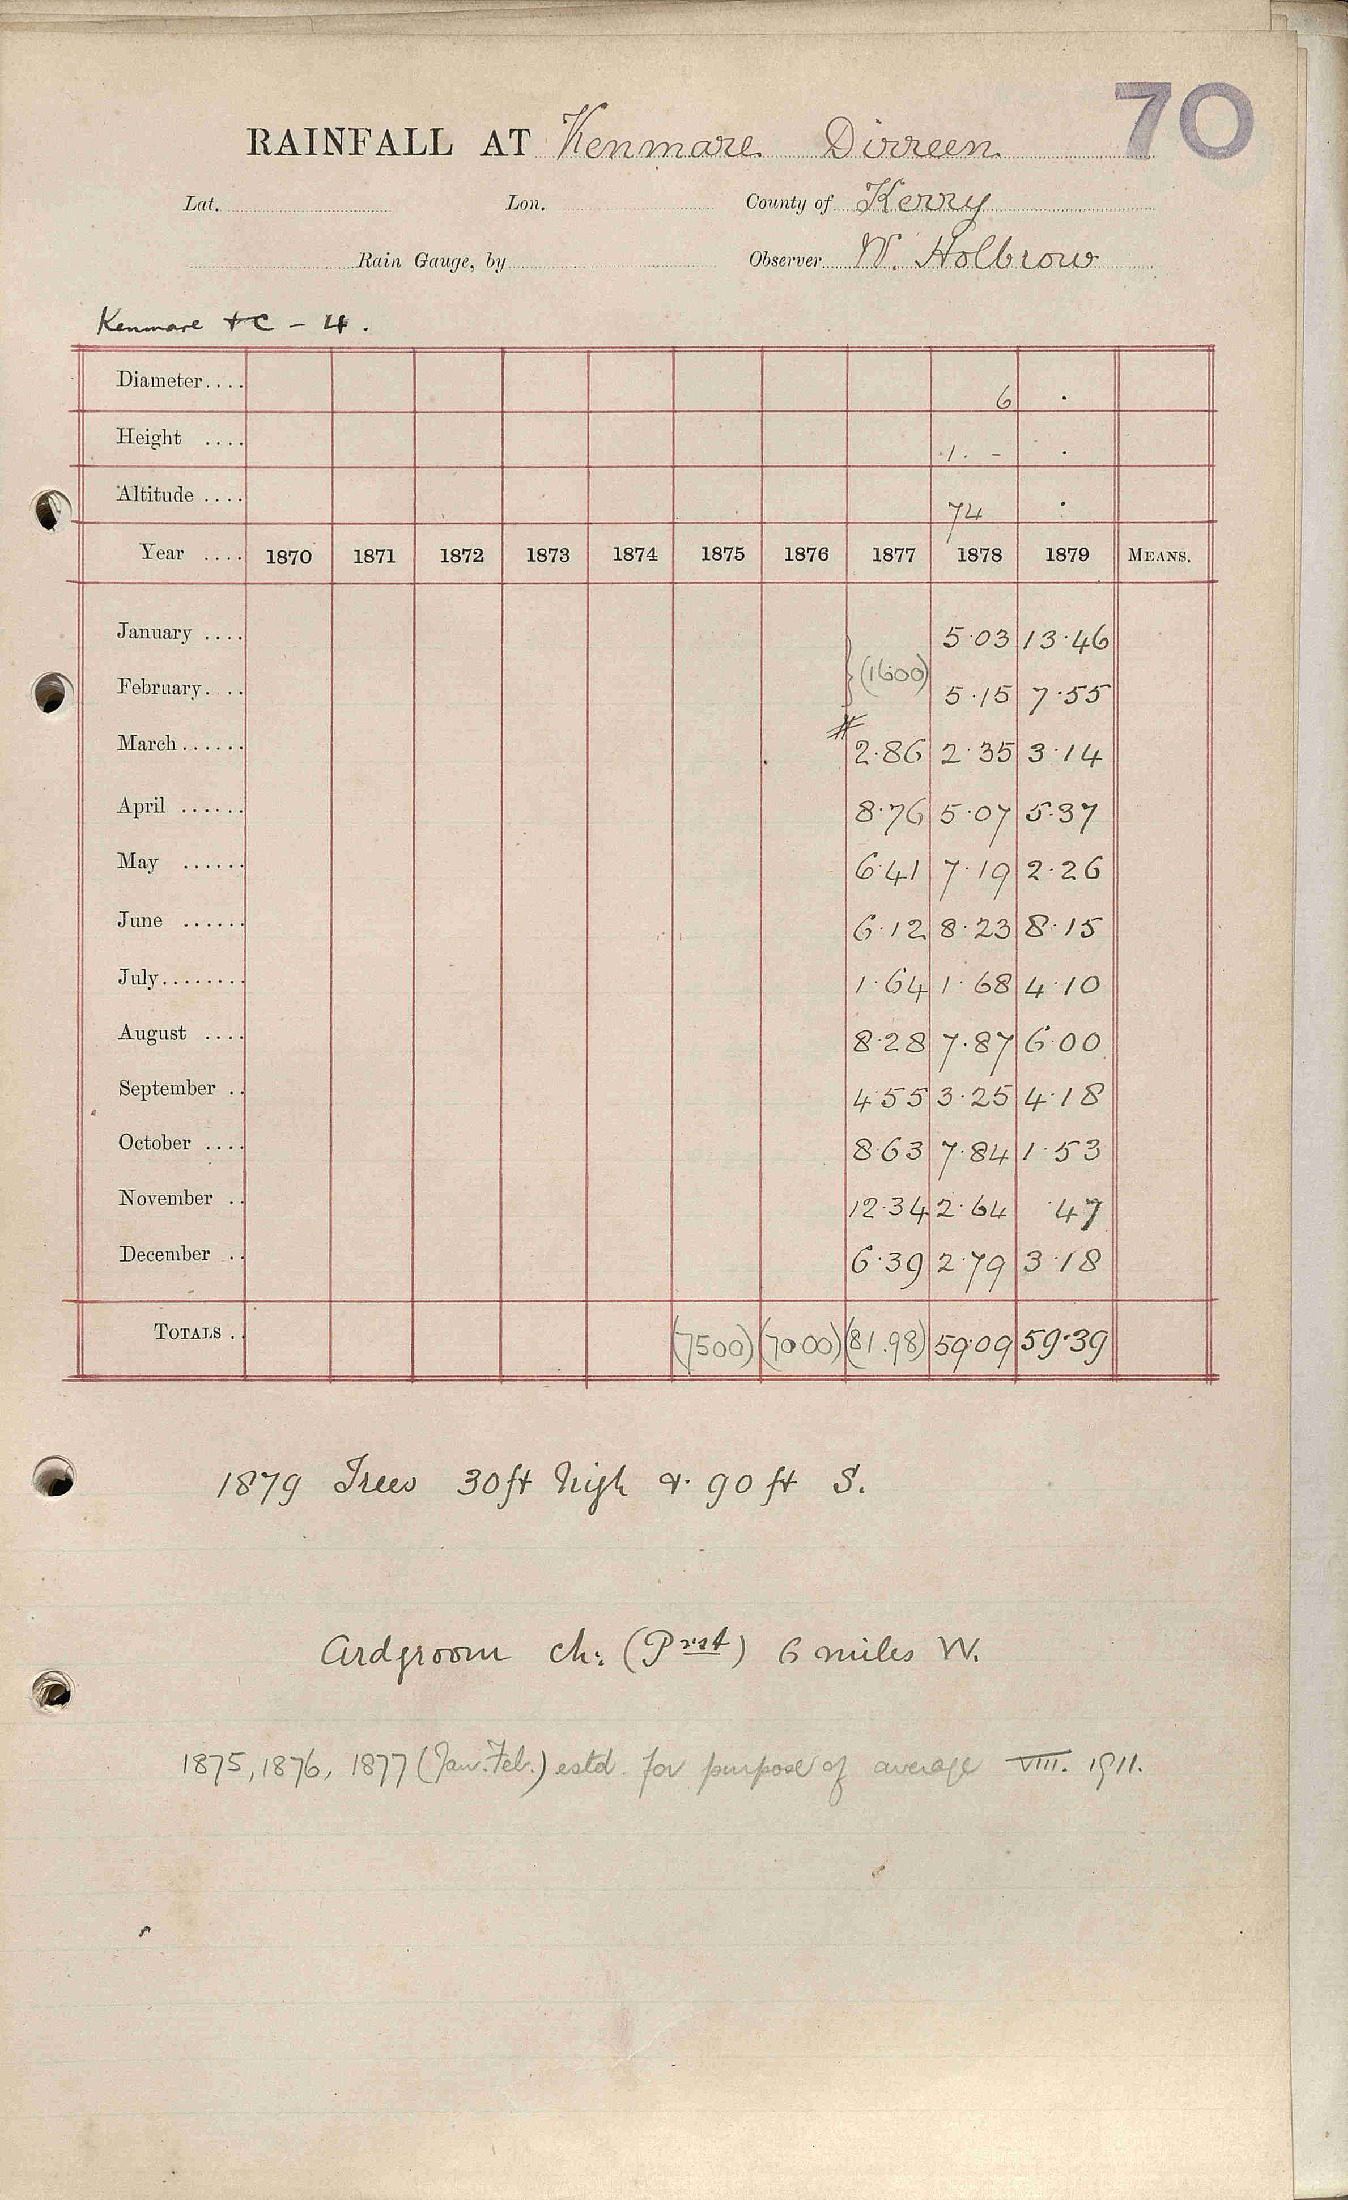 70
RAINFALL AT Kenmare Dirreen
Lat. Lon. County of Kerry
Rain Gauge, by Observer W. Holbrow
Kenmare + C - 4.
Diameter.... 6 .
Height .... 1. - .
Altitude .... 74 .
Year .... 1870 1871 1872 1873 1874 1875 1876 1877 1878 1879 MEANS.
January .... 5.03 13.46
(1600)
February. .. 5.15 7.55
March...... # 2.86 2.35 3.14
April ...... 8.76 5.07 5.37
May ...... 6.41 7.19 2.26
June ...... 6.12 8.23 8.15
July........ 1.64 1.68 4.10
August .... 8.28 7.87 6.00
September .. 4.55 3.25 4.18
October .... 8.63 7.84 1.53
November .. 12.34 2.64 .47
December .. 6.39 2.79 3.18
TOTALS .. (7500) (7000) (81.98) 59.09 59.39
1879 Trees 30ft high & 90ft S.
Ardgroom ch: (Prst) 6 miles W.
1875, 1876, 1877 (Jan. Feb.) estd. for purpose of average VIII. 1911.